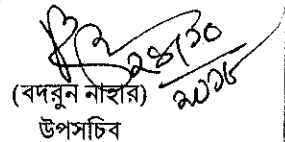 ২৪/১০
২০১৮
(বদরুন নাহার)
উপসচিব